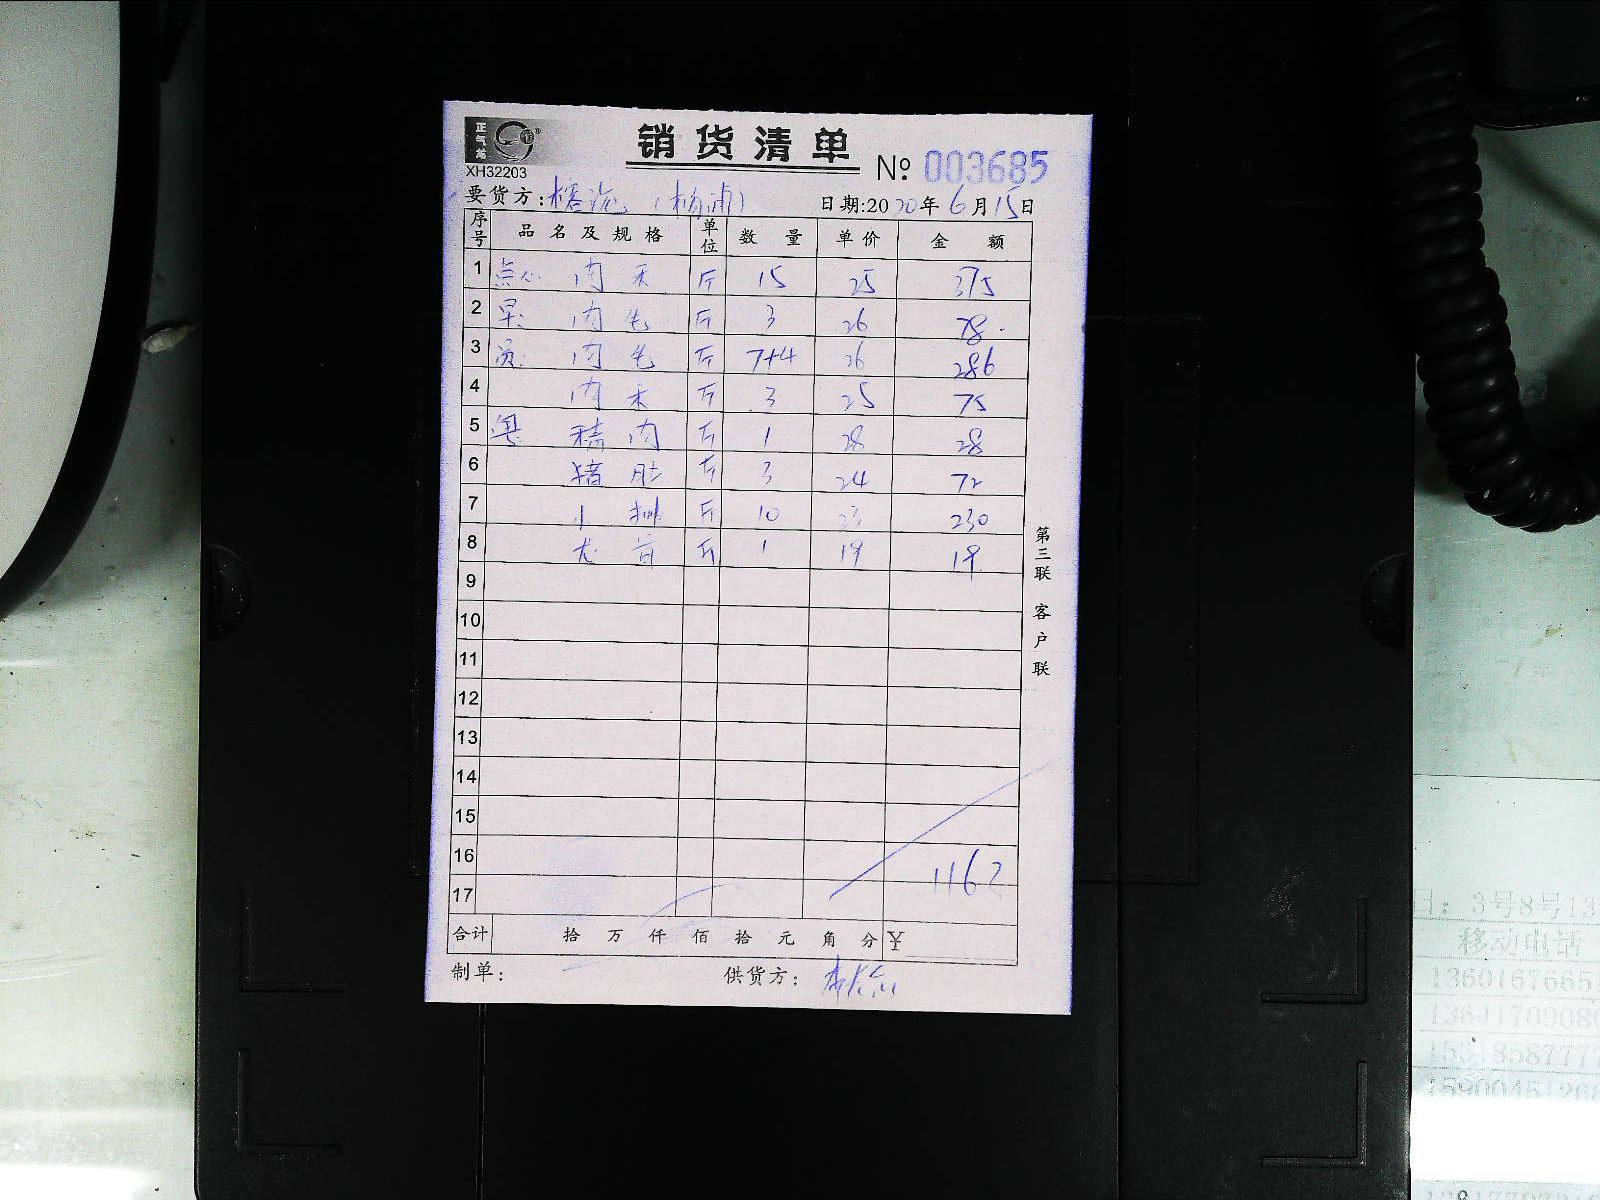 正气龙
销货清单
XH32203
№ 003685
要货方: (杨浦) 日期:2020年6月15日
序号 品名及规格 单位 数量 单价 金额
1 点心 肉末 斤 15 25 375
2 早: 肉 斤 3 26 78.
3 肉 斤 7+4 26 286
4 肉末 斤 3 25 75
5 粤 精肉 斤 1 28 28
6 猪肚 斤 3 24 72
7 小排 斤 10 23 230
8 斤 1 19 19
9
10
11
12
13
14
15
16 1162
17
合计 拾万仟佰拾元角分 ¥
制单: 供货方:
第三联 客户联
日: 3号8号13
移动电话
1360167665
1364170908
1531858777
1590045126